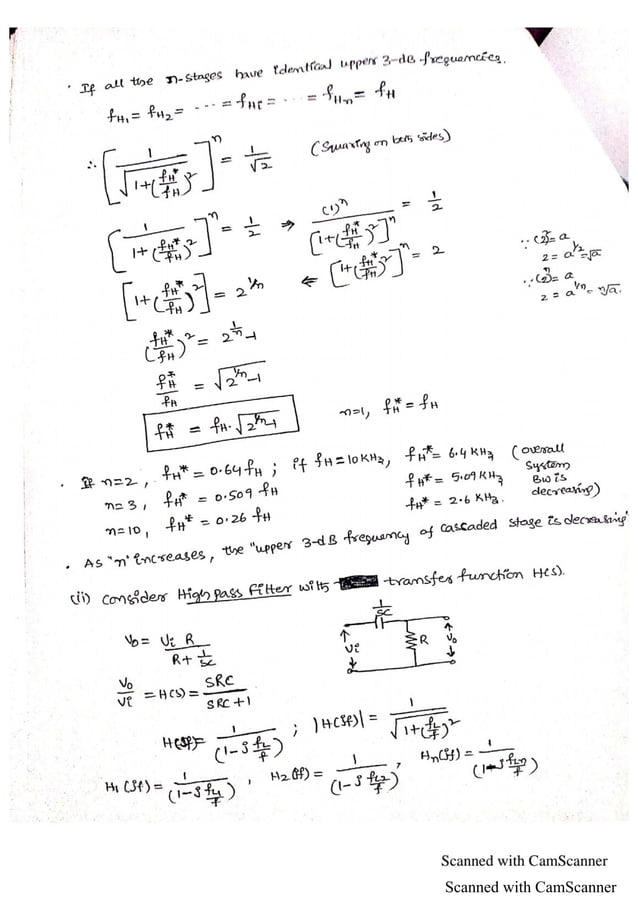 · If all the n-stages have identical upper 3-dB frequencies.
fH1 = fH2 = ---- = fHi = ---- = fHn = fH
∴ [ 1 / √(1+(fH*/fH)²) ]^n = 1/√2 (Squaring on both sides)
[ 1 / (1+(fH*/fH)²) ]^n = 1/2 ⇒ (1)^n / [1+(fH*/fH)²]^n = 1/2
∵ (2)² = a
2 = a^(1/2) = √a
[1+(fH*/fH)²] = 2^(1/n) ⇐ [1+(fH*/fH)²]^n = 2
∵ (2)^n = a
2 = a^(1/n) = ⁿ√a
(fH*/fH)² = 2^(1/n) - 1
fH*/fH = √(2^(1/n) - 1)
fH* = fH.√(2^(1/n) - 1) n=1, fH* = fH
· If n=2, fH* = 0.64 fH ; if fH = 10 KHz, fH* = 6.4 KHz (overall
n=3, fH* = 0.509 fH fH* = 5.09 KHz System
BW is
n=10, fH* = 0.26 fH fH* = 2.6 KHz. decreasing)
· As "n" increases, the "upper 3-dB frequency of cascaded stage is decreasing"
(ii) Consider High pass Filter with transfer function H(s).
Vo = Vi R / (R + 1/SC)
1/SC
Vi R Vo
Vo/Vi = H(s) = SRC / (SRC+1)
H(jf) = 1 / (1-j fL/f) ; |H(jf)| = 1 / √(1+(fL/f)²)
H1(jf) = 1 / (1-j fL1/f) , H2(jf) = 1 / (1-j fL2/f) , Hn(jf) = 1 / (1-j fLn/f)
Scanned with CamScanner
Scanned with CamScanner